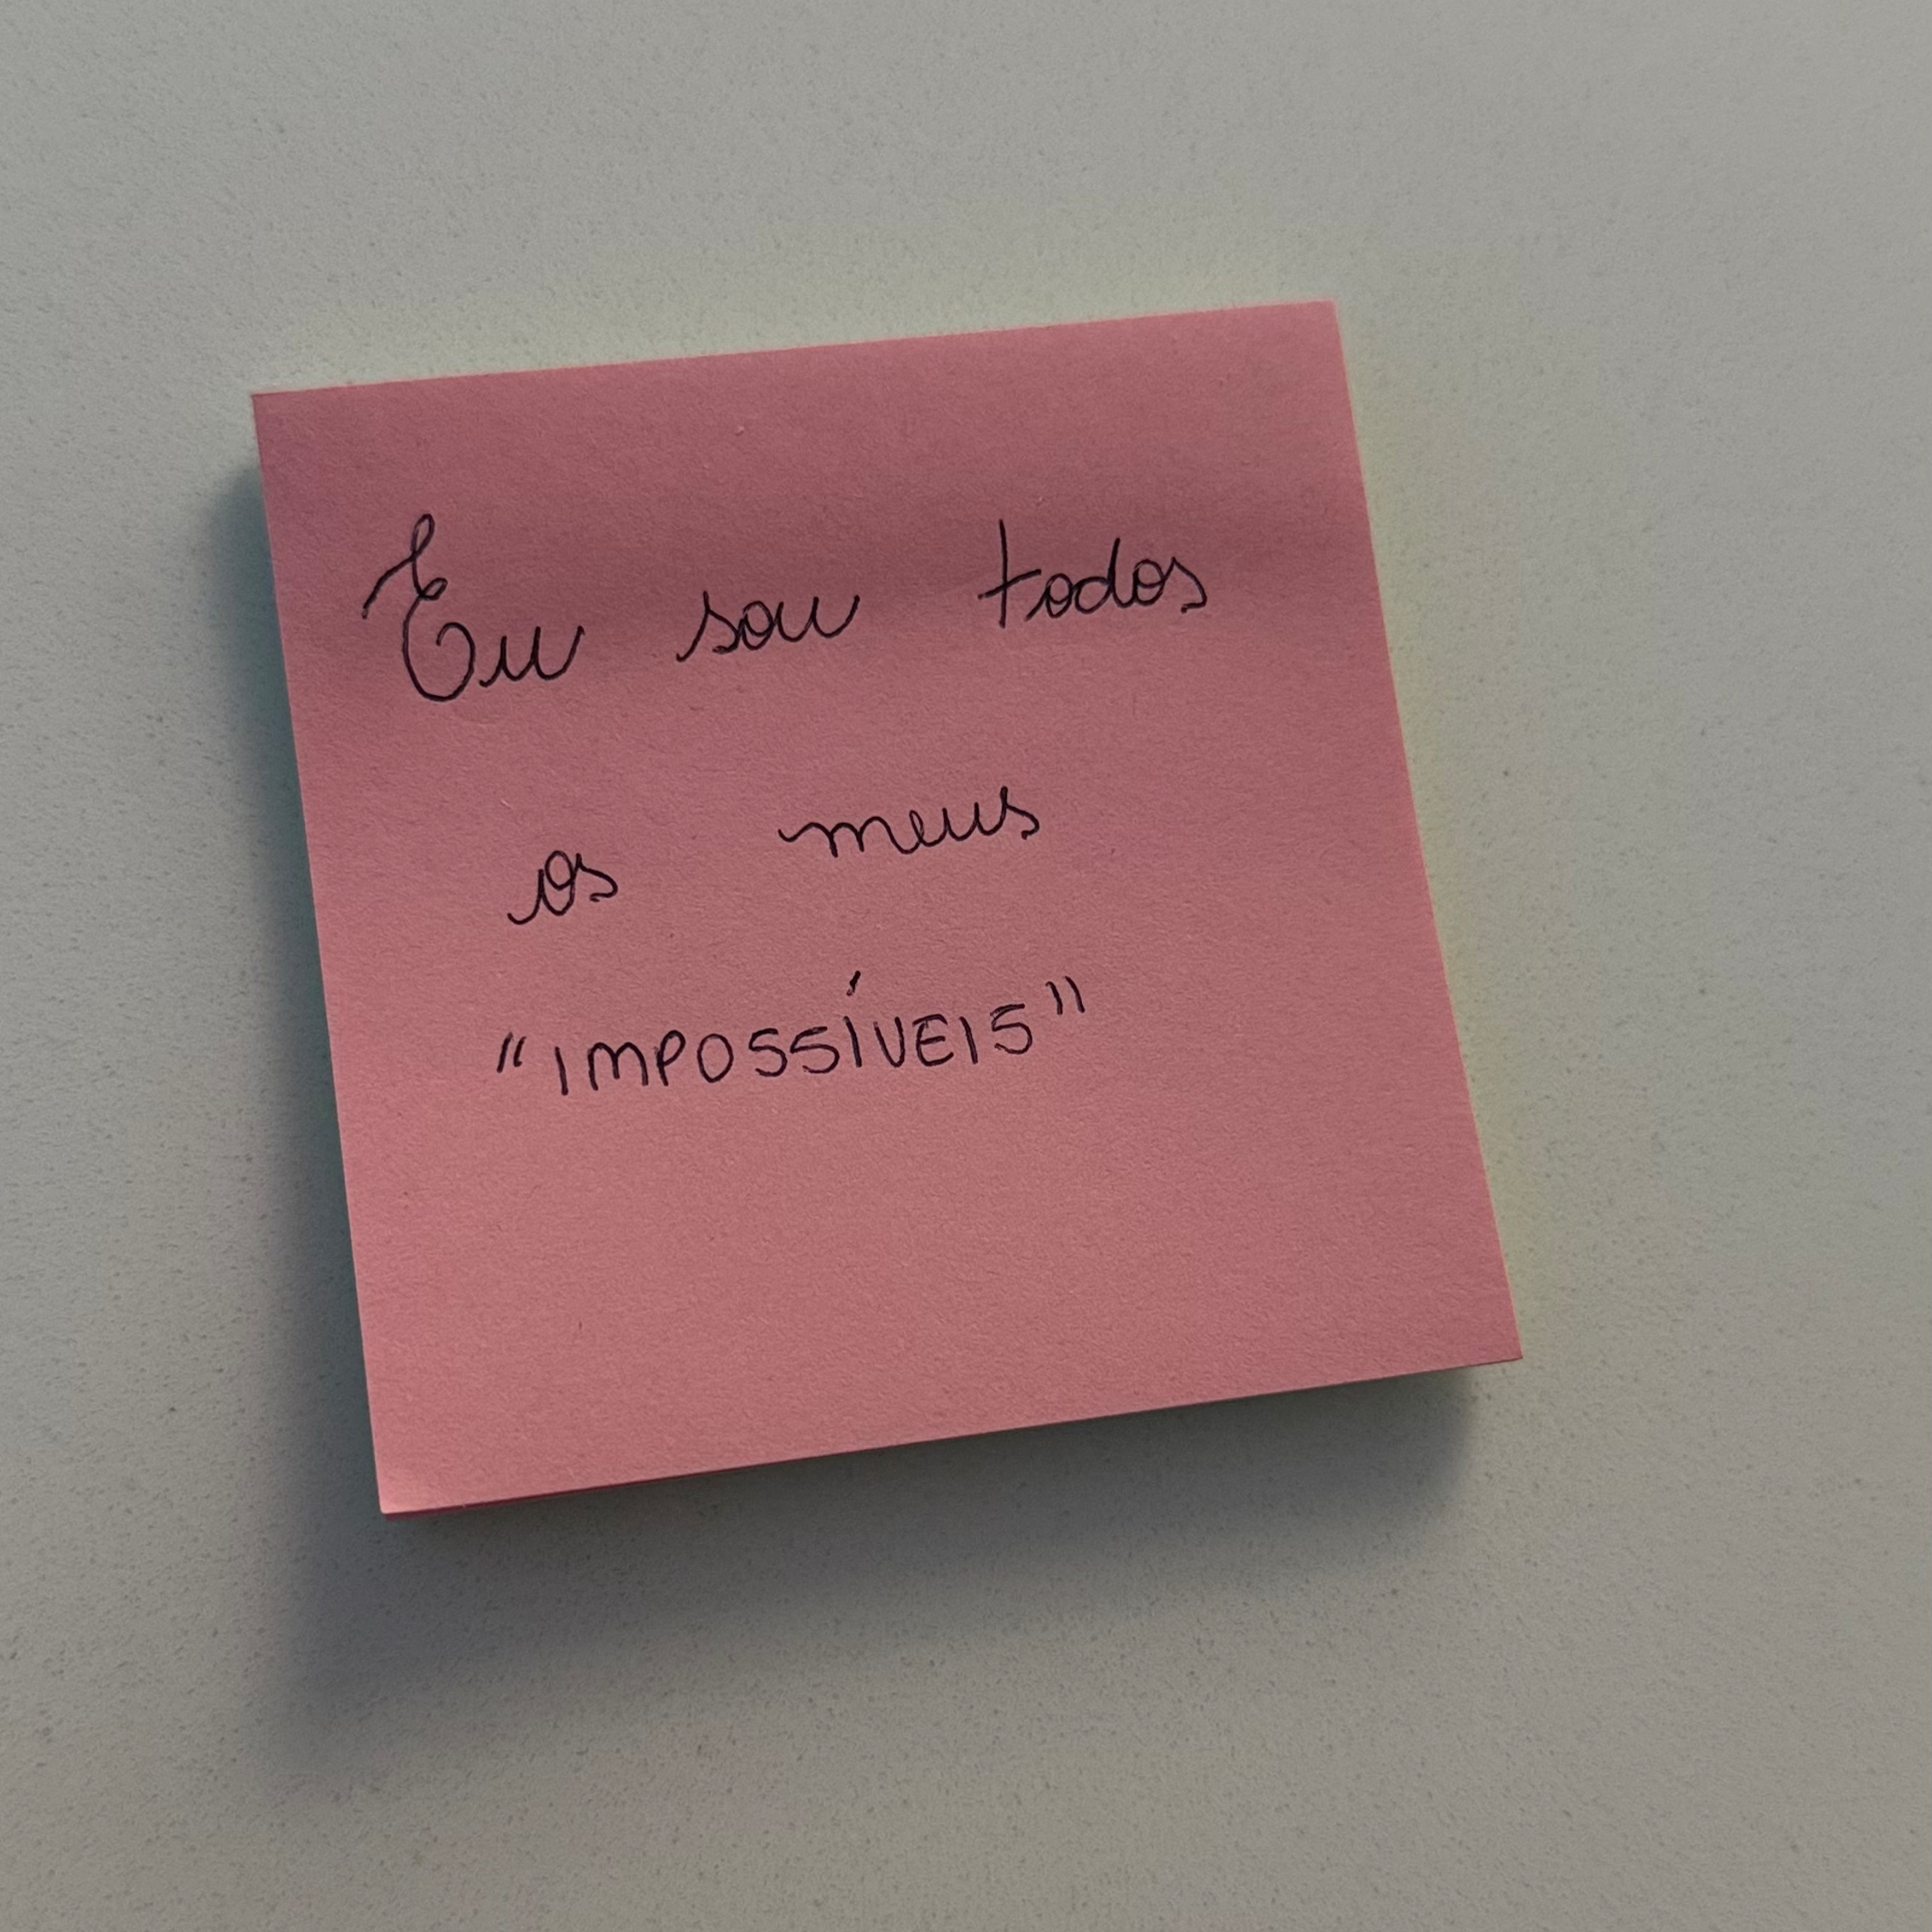 Eu sou todos
os meus
"IMPOSSÍVEIS"